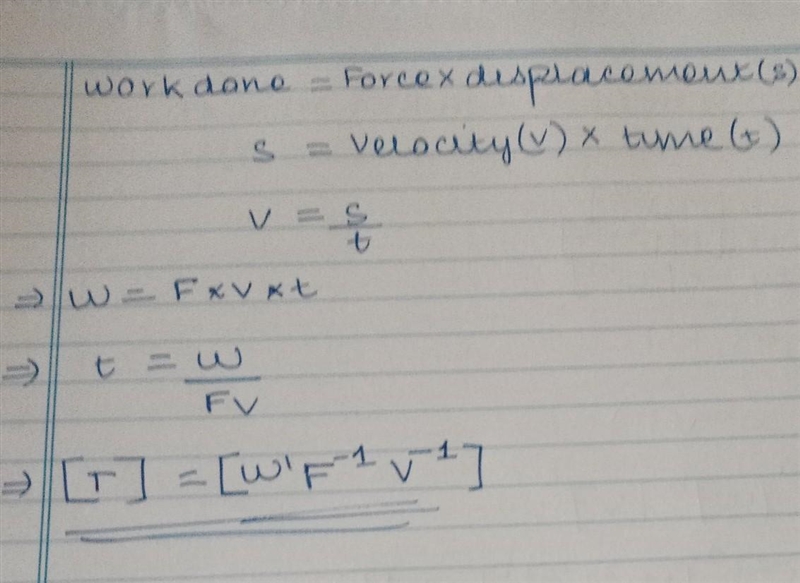 Work done = Force x displacement (s)
s = velocity (v) x time (t)
v = s/t
⇒ W = F x v x t
⇒ t = W/FV
⇒ [T] = [W¹ F⁻¹ V⁻¹]